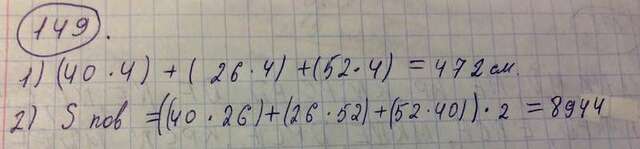 149.
1) (40·4) + (26·4) + (52·4) = 472 см.
2) S пов = ((40·26)+(26·52)+(52·40))·2 = 8944